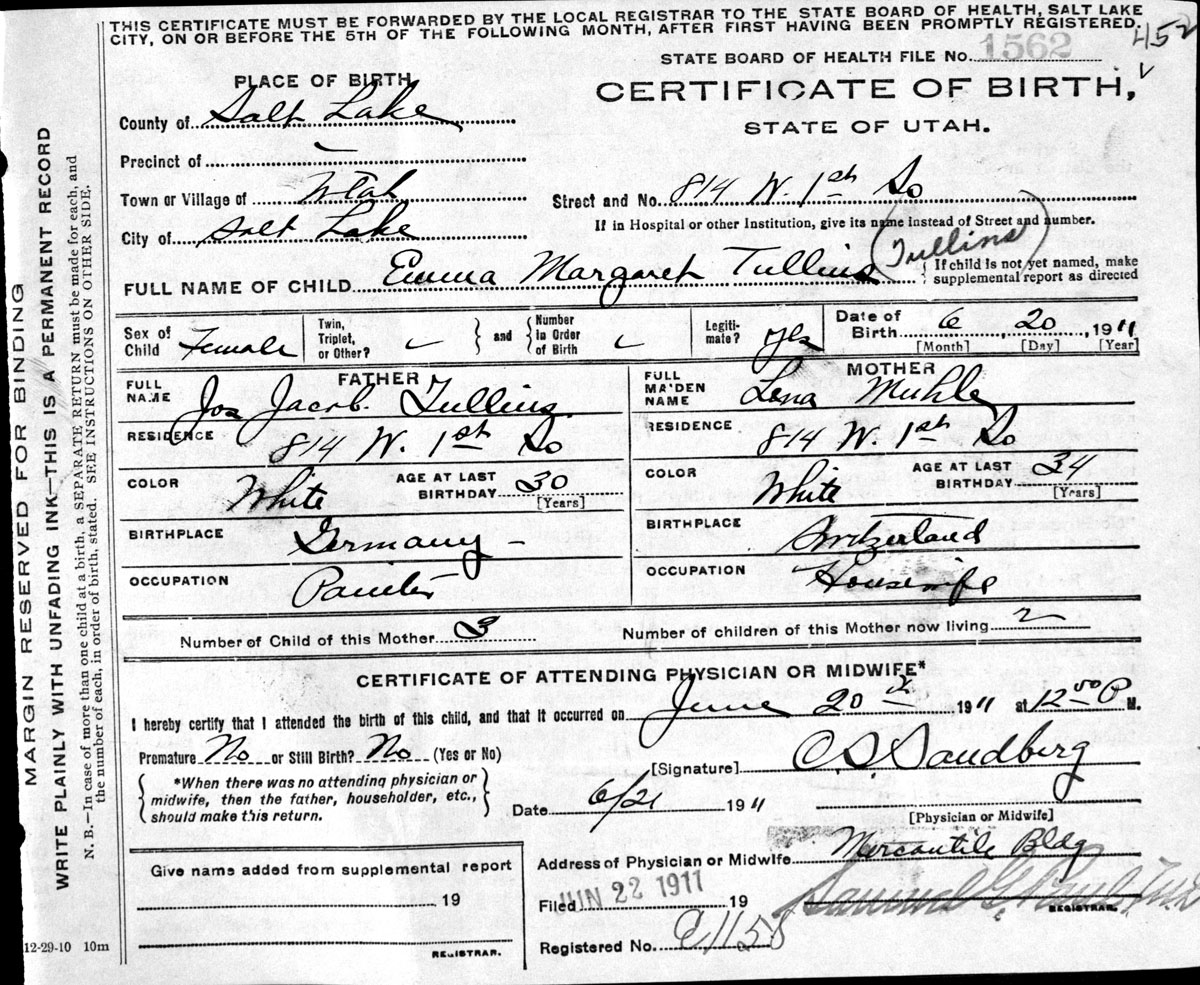 THIS CERTIFICATE MUST BE FORWARDED BY THE LOCAL REGISTRAR TO THE STATE BOARD OF HEALTH, SALT LAKE
CITY, ON OR BEFORE THE 5TH OF THE FOLLOWING MONTH, AFTER FIRST HAVING BEEN PROMPTLY REGISTERED.
452
STATE BOARD OF HEALTH FILE No. 1562
PLACE OF BIRTH
CERTIFICATE OF BIRTH,
STATE OF UTAH.
County of Salt Lake
Precinct of
Town or Village of Utah
Street and No. 814 W. 1st So
If in Hospital or other Institution, give its name instead of Street and number.
City of Salt Lake
(Tullins)
FULL NAME OF CHILD Emma Margaret Tullins
{ If child is not yet named, make
supplemental report as directed
Sex of Child Female
Twin, Triplet, or Other?
and
Number in Order of Birth
Legiti- mate? Yes
Date of Birth 6 20, 1911
[Month] [Day] [Year]
FATHER
MOTHER
FULL NAME Jos Jacob. Tullins.
FULL MAIDEN NAME Lena Muhle
RESIDENCE 814 W. 1st So
RESIDENCE 814 W. 1st So
COLOR White
AGE AT LAST BIRTHDAY 30
[Years]
COLOR White
AGE AT LAST BIRTHDAY 34
[Years]
BIRTHPLACE Germany
BIRTHPLACE Switzerland
OCCUPATION Painter
OCCUPATION Housewife
Number of Child of this Mother 3
Number of children of this Mother now living 2
CERTIFICATE OF ATTENDING PHYSICIAN OR MIDWIFE*
I hereby certify that I attended the birth of this child, and that it occurred on June 20th 1911 at 12 00 P M.
Premature No or Still Birth? No (Yes or No)
[Signature] C.S. Sandberg
{ *When there was no attending physician or
midwife, then the father, householder, etc.,
should make this return. }
Date 6/21 1911
[Physician or Midwife]
Address of Physician or Midwife Mercantile Bldg
Give name added from supplemental report
19
REGISTRAR.
Filed JUN 22 1911 19
REGISTRAR.
Registered No. C1158
12-29-10 10m
MARGIN RESERVED FOR BINDING
WRITE PLAINLY WITH UNFADING INK—THIS IS A PERMANENT RECORD
N. B.—In case of more than one child at a birth, a SEPARATE RETURN must be made for each, and
the number of each, in order of birth, stated. SEE INSTRUCTIONS ON OTHER SIDE.